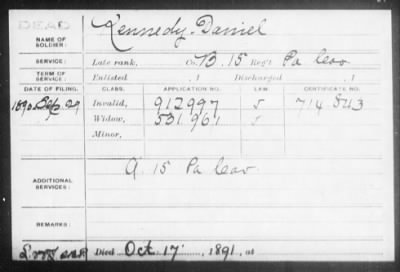 DEAD
NAME OF SOLDIER: Kennedy, Daniel
SERVICE: Late rank, Co. B. 15 Reg't Pa Cav
TERM OF SERVICE: Enlisted , 1 Discharged , 1
DATE OF FILING. CLASS. APPLICATION NO. LAW. CERTIFICATE NO.
1890. Sep. 29 Invalid, 912997 J 714.543
Widow, 531.961 J
Minor,
ADDITIONAL SERVICES: A. 15 Pa Cav.
REMARKS:
Died Oct 17, 1891, at